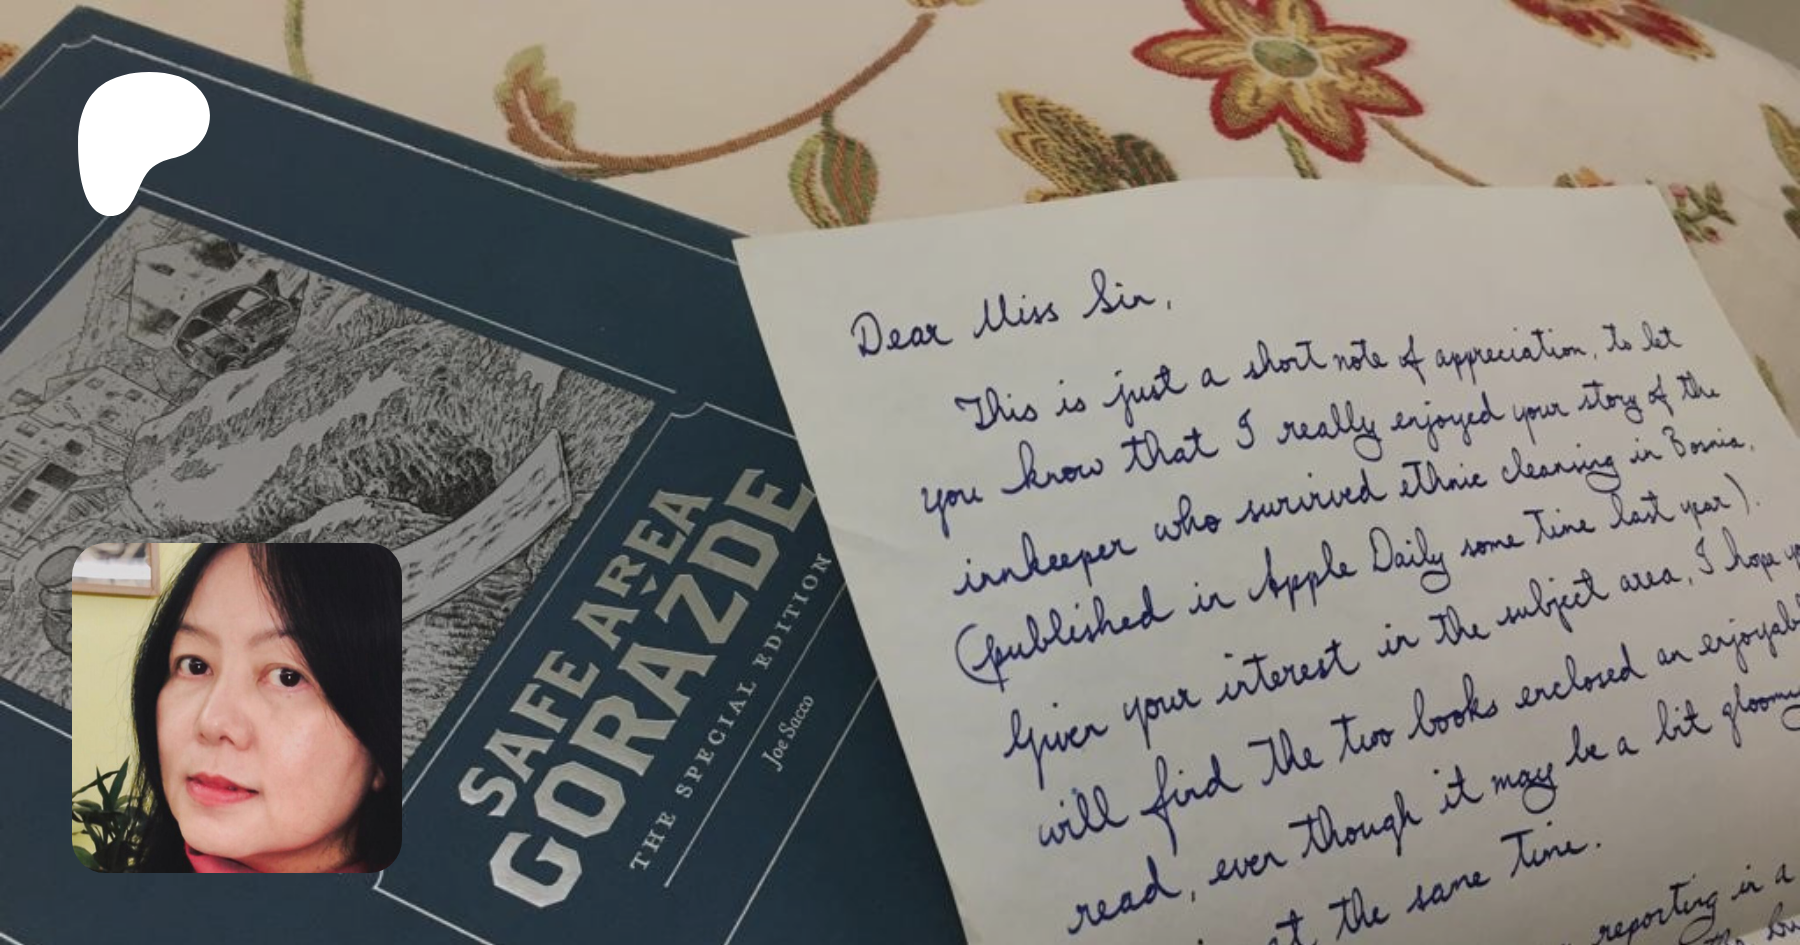 SAFE AREA
GORAŽDE
THE SPECIAL EDITION
Joe Sacco
Dear Miss Sin,
This is just a short note of appreciation, to let
you know that I really enjoyed your story of the
innkeeper who survived ethnic cleansing in Bosnia.
(published in Apple Daily some time last year).
Given your interest in the subject area, I hope
will find the two books enclosed an
read, even though it may be a bit
at the same time.
reporting in a